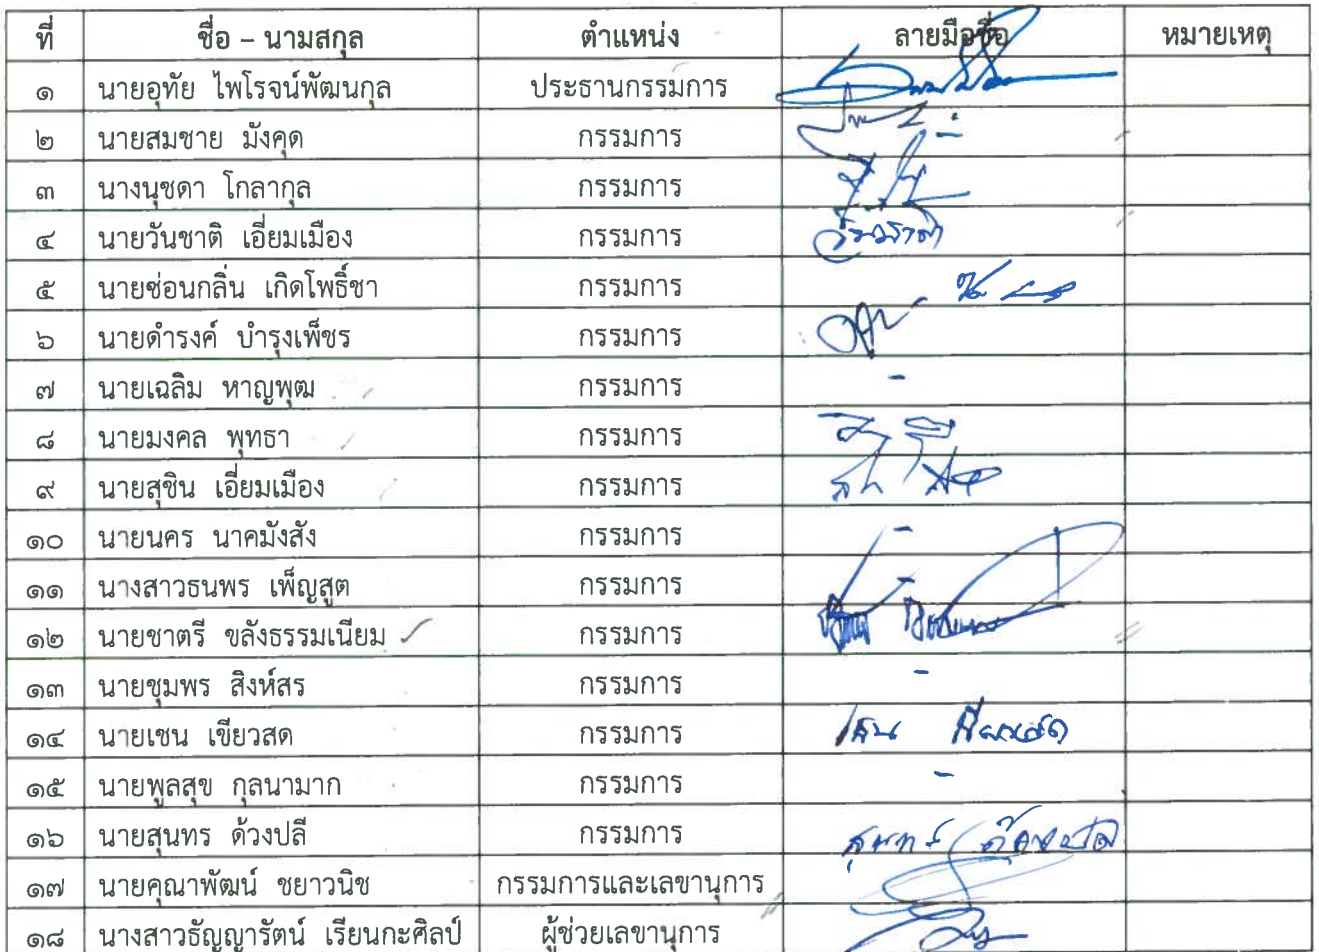 ที่ ชื่อ – นามสกุล ตำแหน่ง ลายมือชื่อ หมายเหตุ
๑ นายอุทัย ไพโรจน์พัฒนกุล ประธานกรรมการ
๒ นายสมชาย มังคุด กรรมการ
๓ นางนุชดา โกลากุล กรรมการ
๔ นายวันชาติ เอี่ยมเมือง กรรมการ วันชาติ
๕ นายซ่อนกลิ่น เกิดโพธิ์ชา กรรมการ
๖ นายดำรงค์ บำรุงเพ็ชร กรรมการ
๗ นายเฉลิม หาญพุฒ กรรมการ -
๘ นายมงคล พุทธา กรรมการ
๙ นายสุชิน เอี่ยมเมือง กรรมการ
๑๐ นายนคร นาคมังสัง กรรมการ -
๑๑ นางสาวธนพร เพ็ญสูต กรรมการ -
๑๒ นายชาตรี ขลังธรรมเนียม กรรมการ
๑๓ นายชุมพร สิงห์สร กรรมการ -
๑๔ นายเชน เขียวสด กรรมการ เชน เขียวสด
๑๕ นายพูลสุข กุลนามาก กรรมการ -
๑๖ นายสุนทร ด้วงปลี กรรมการ สุนทร ด้วงปลี
๑๗ นายคุณาพัฒน์ ชยาวนิช กรรมการและเลขานุการ
๑๘ นางสาวธัญญารัตน์ เรียนกะศิลป์ ผู้ช่วยเลขานุการ